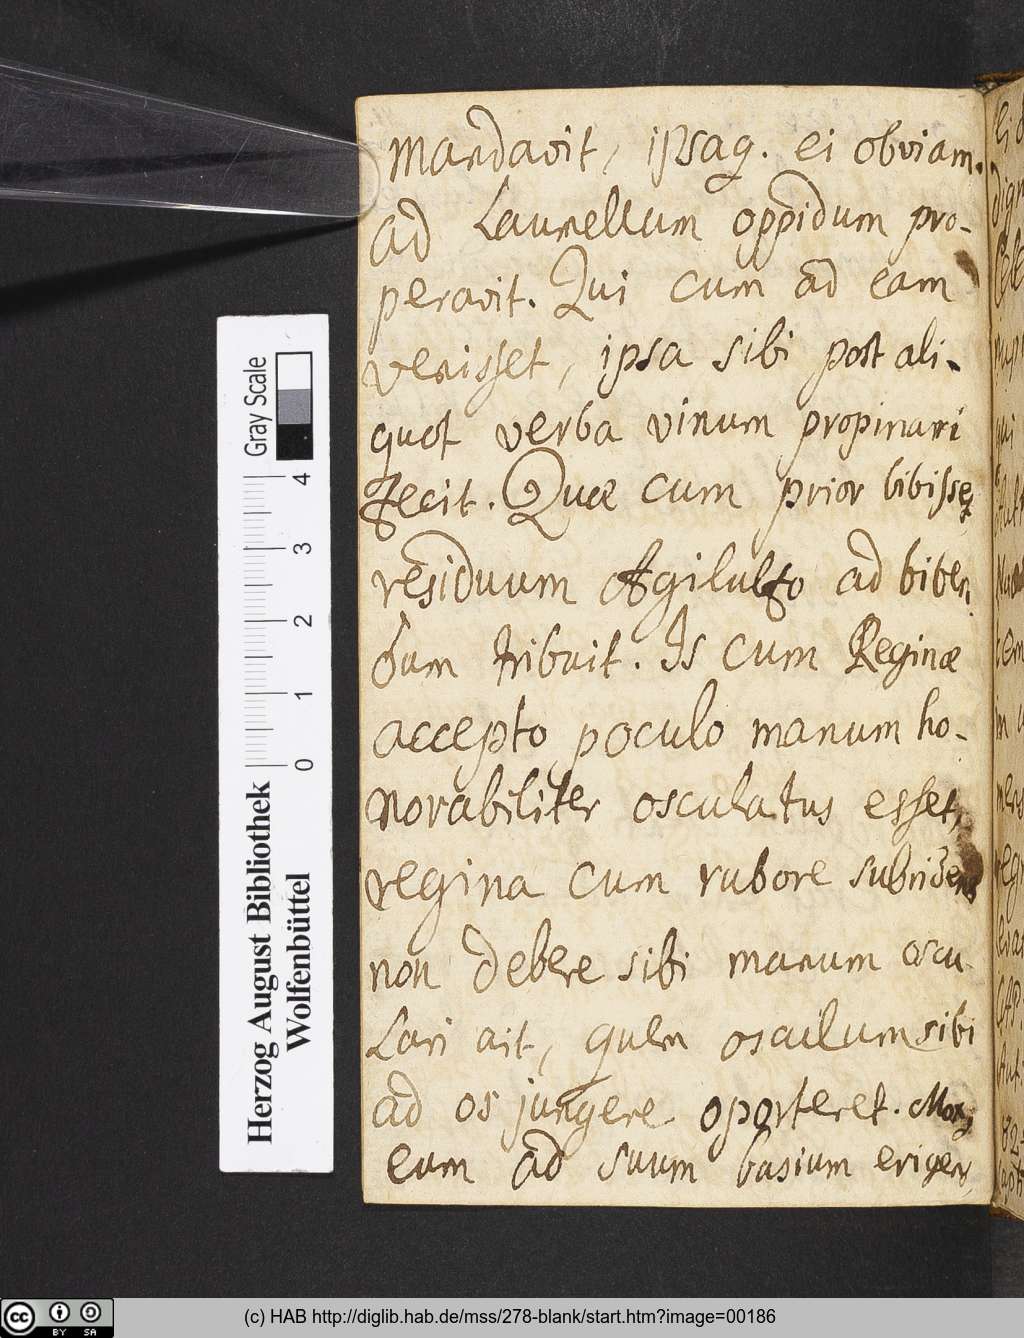 mandavit, ipsaq. ei obviam.
ad Laumellum oppidum pro-
peravit. Qui cum ad eam
venisset, ipsa sibi post ali-
quot verba vinum propinari
fecit. Quæ cum prior bibisset,
residuum Agilulfo ad biben,
dum tribuit. Is cum Reginæ
accepto poculo manum ho-
norabiliter osculatus esset,
regina cum rubore subridens
non debere sibi manum oscu-
lari ait, quem osculum sibi
ad os jungere oporteret. Moxq
eum ad suum basium erigens,
Gray Scale
0 1 2 3 4
Herzog August Bibliothek
Wolfenbüttel
cc BY SA
(c) HAB http://diglib.hab.de/mss/278-blank/start.htm?image=00186